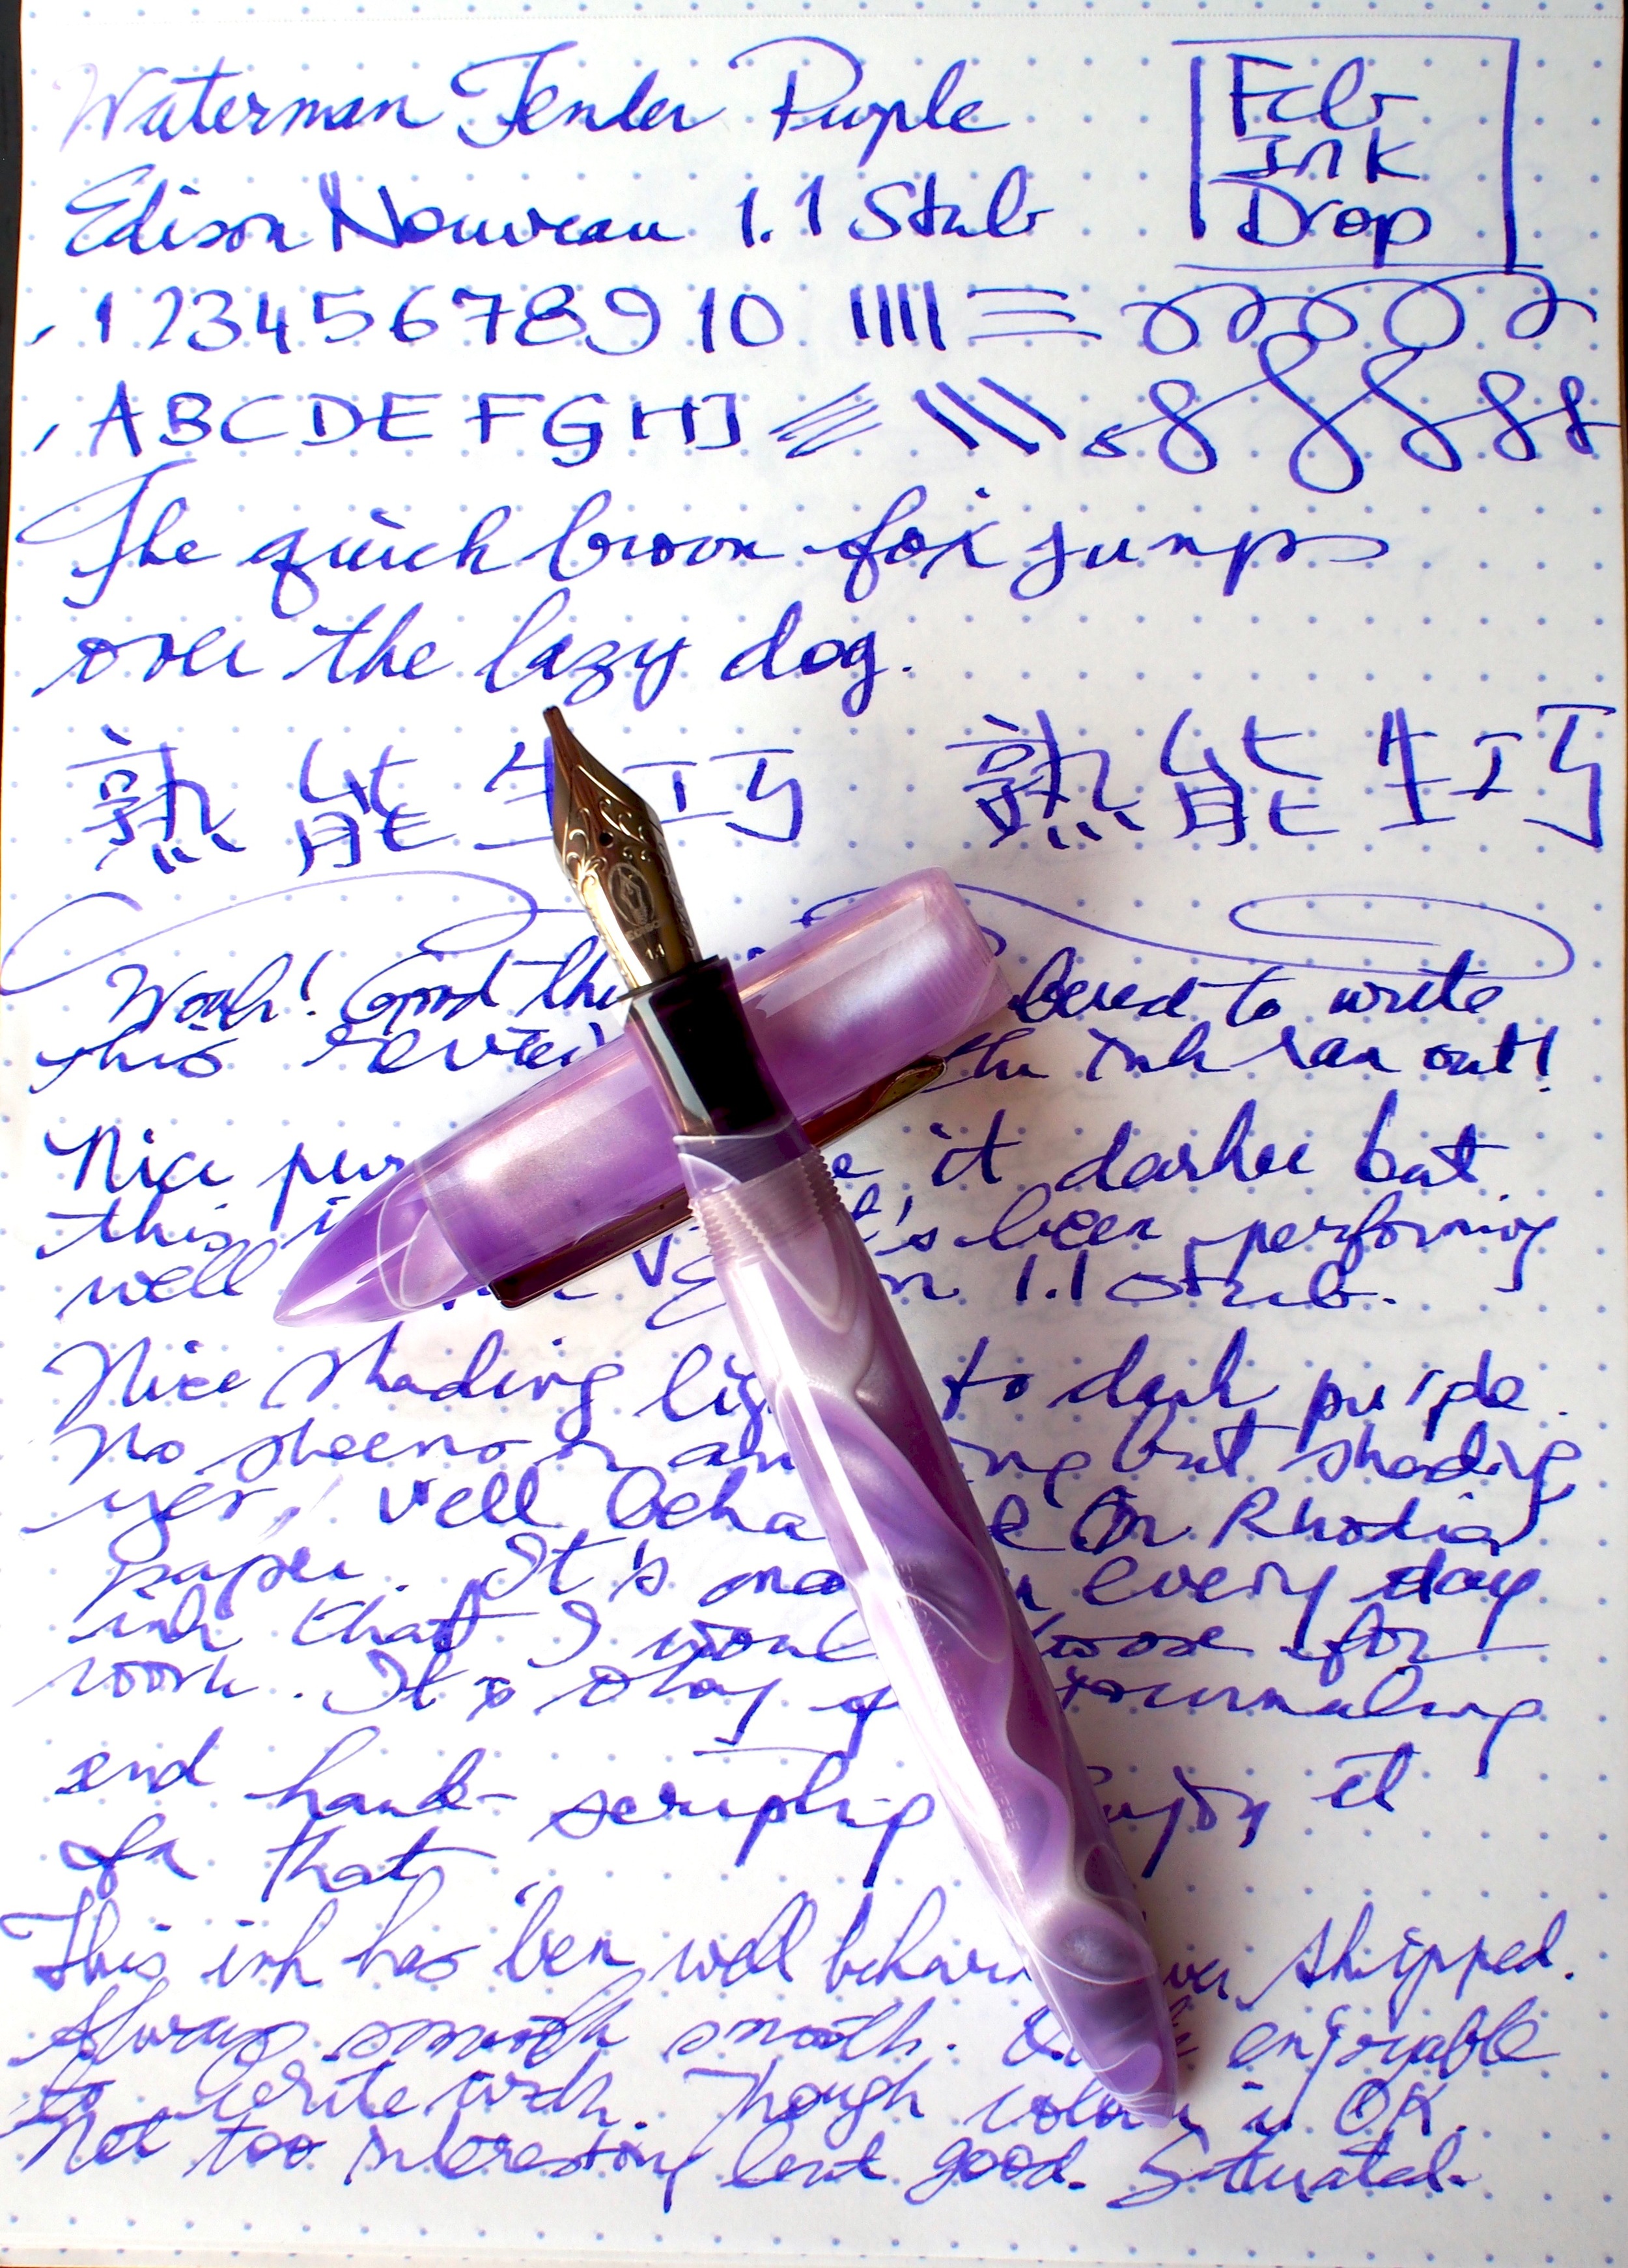 Waterman Tender Purple
Feb
Ink
Drop
Edison Nouveau 1.1 Stub
1 2 3 4 5 6 7 8 9 10
A B C D E F G H I
The quick brown fox jumps
over the lazy dog.
熟能生巧 熟能生巧
Woah! Good to write
this the ink ran out!
Nice it darker but
this been performing
well 1.1 Stub.
Nice shading to dark purple.
No sheen or but shading
yes, well on Rhodia
paper. It's every day
ink that I for
work. It's okay journaling
and hand-scripting enjoy it
for that.
This ink has been well skipped.
Always smooth smooth. enjoyable
to write with. Though colour is OK.
Not too interesting but good. Saturated.
EDISON
1.1